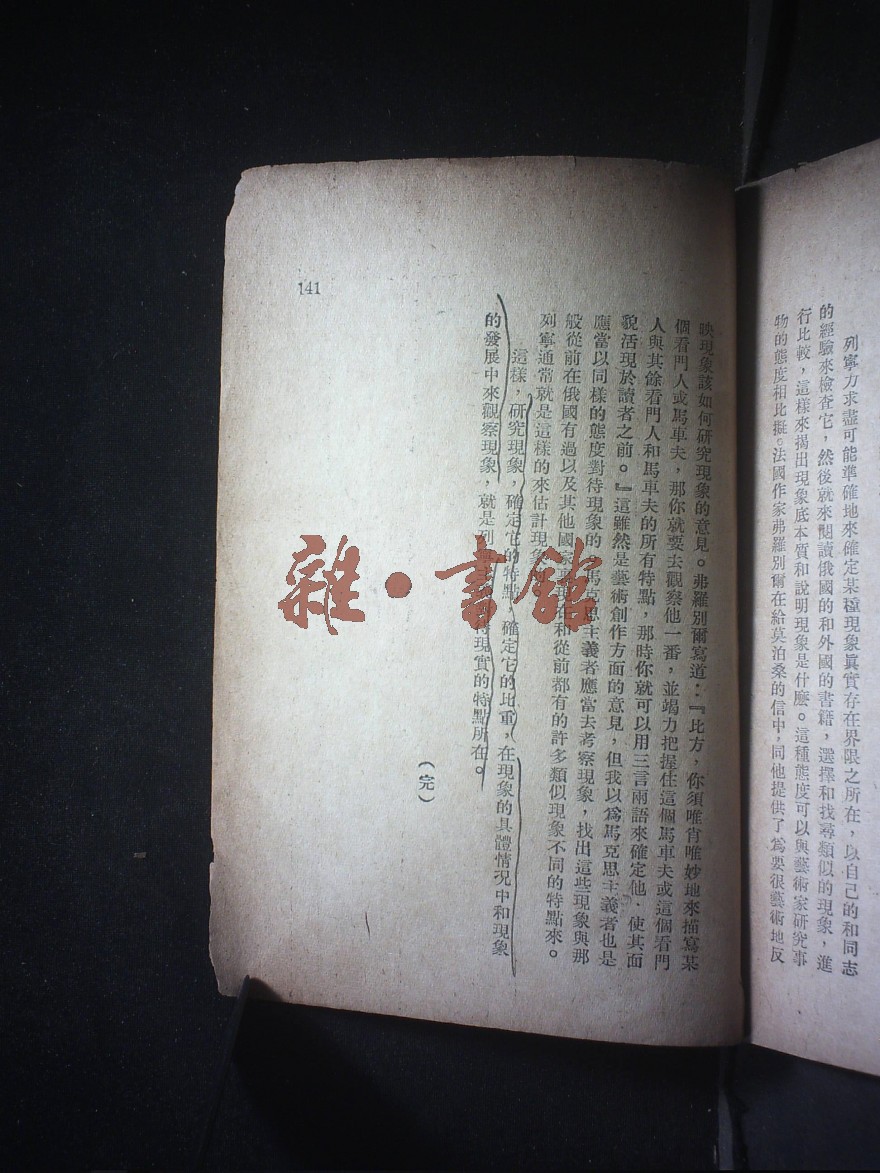 列寧力求盡可能準確地來確定某種現象眞實存在界限之所在，以自己的和同志
的經驗來檢查它，然後就來閱讀俄國的和外國的書籍，選擇和找尋類似的現象，進
行比較，這樣來揭出現象底本質和說明現象是什麽。這種態度可以與藝術家研究事
物的態度相比擬。法國作家弗羅別爾在給莫泊桑的信中，同他提供了爲要很藝術地反
映現象該如何研究現象的意見。弗羅別爾寫道：『比方，你須唯肖唯妙地來描寫某
個看門人或馬車夫，那你就要去觀察他一番，並竭力把握住這個馬車夫或這個看門
人與其餘看門人和馬車夫的所有特點，那時你就可以用三言兩語來確定他．使其面
貌活現於讀者之前。』這雖然是藝術創作方面的意見，但我以爲馬克思主義者也是
應當以同樣的態度對待現象的。馬克思主義者應當去考察現象，找出這些現象與那
般從前在俄國有過以及其他國家現在和從前都有的許多類似現象不同的特點來。
列寧通常就是這樣的來估計現象
這樣，研究現象，確定它的特點，確定它的比重，在現象的具體情况中和現象
的發展中來觀察現象，就是列 現實的特點所在。
（完）
141
雜·書館